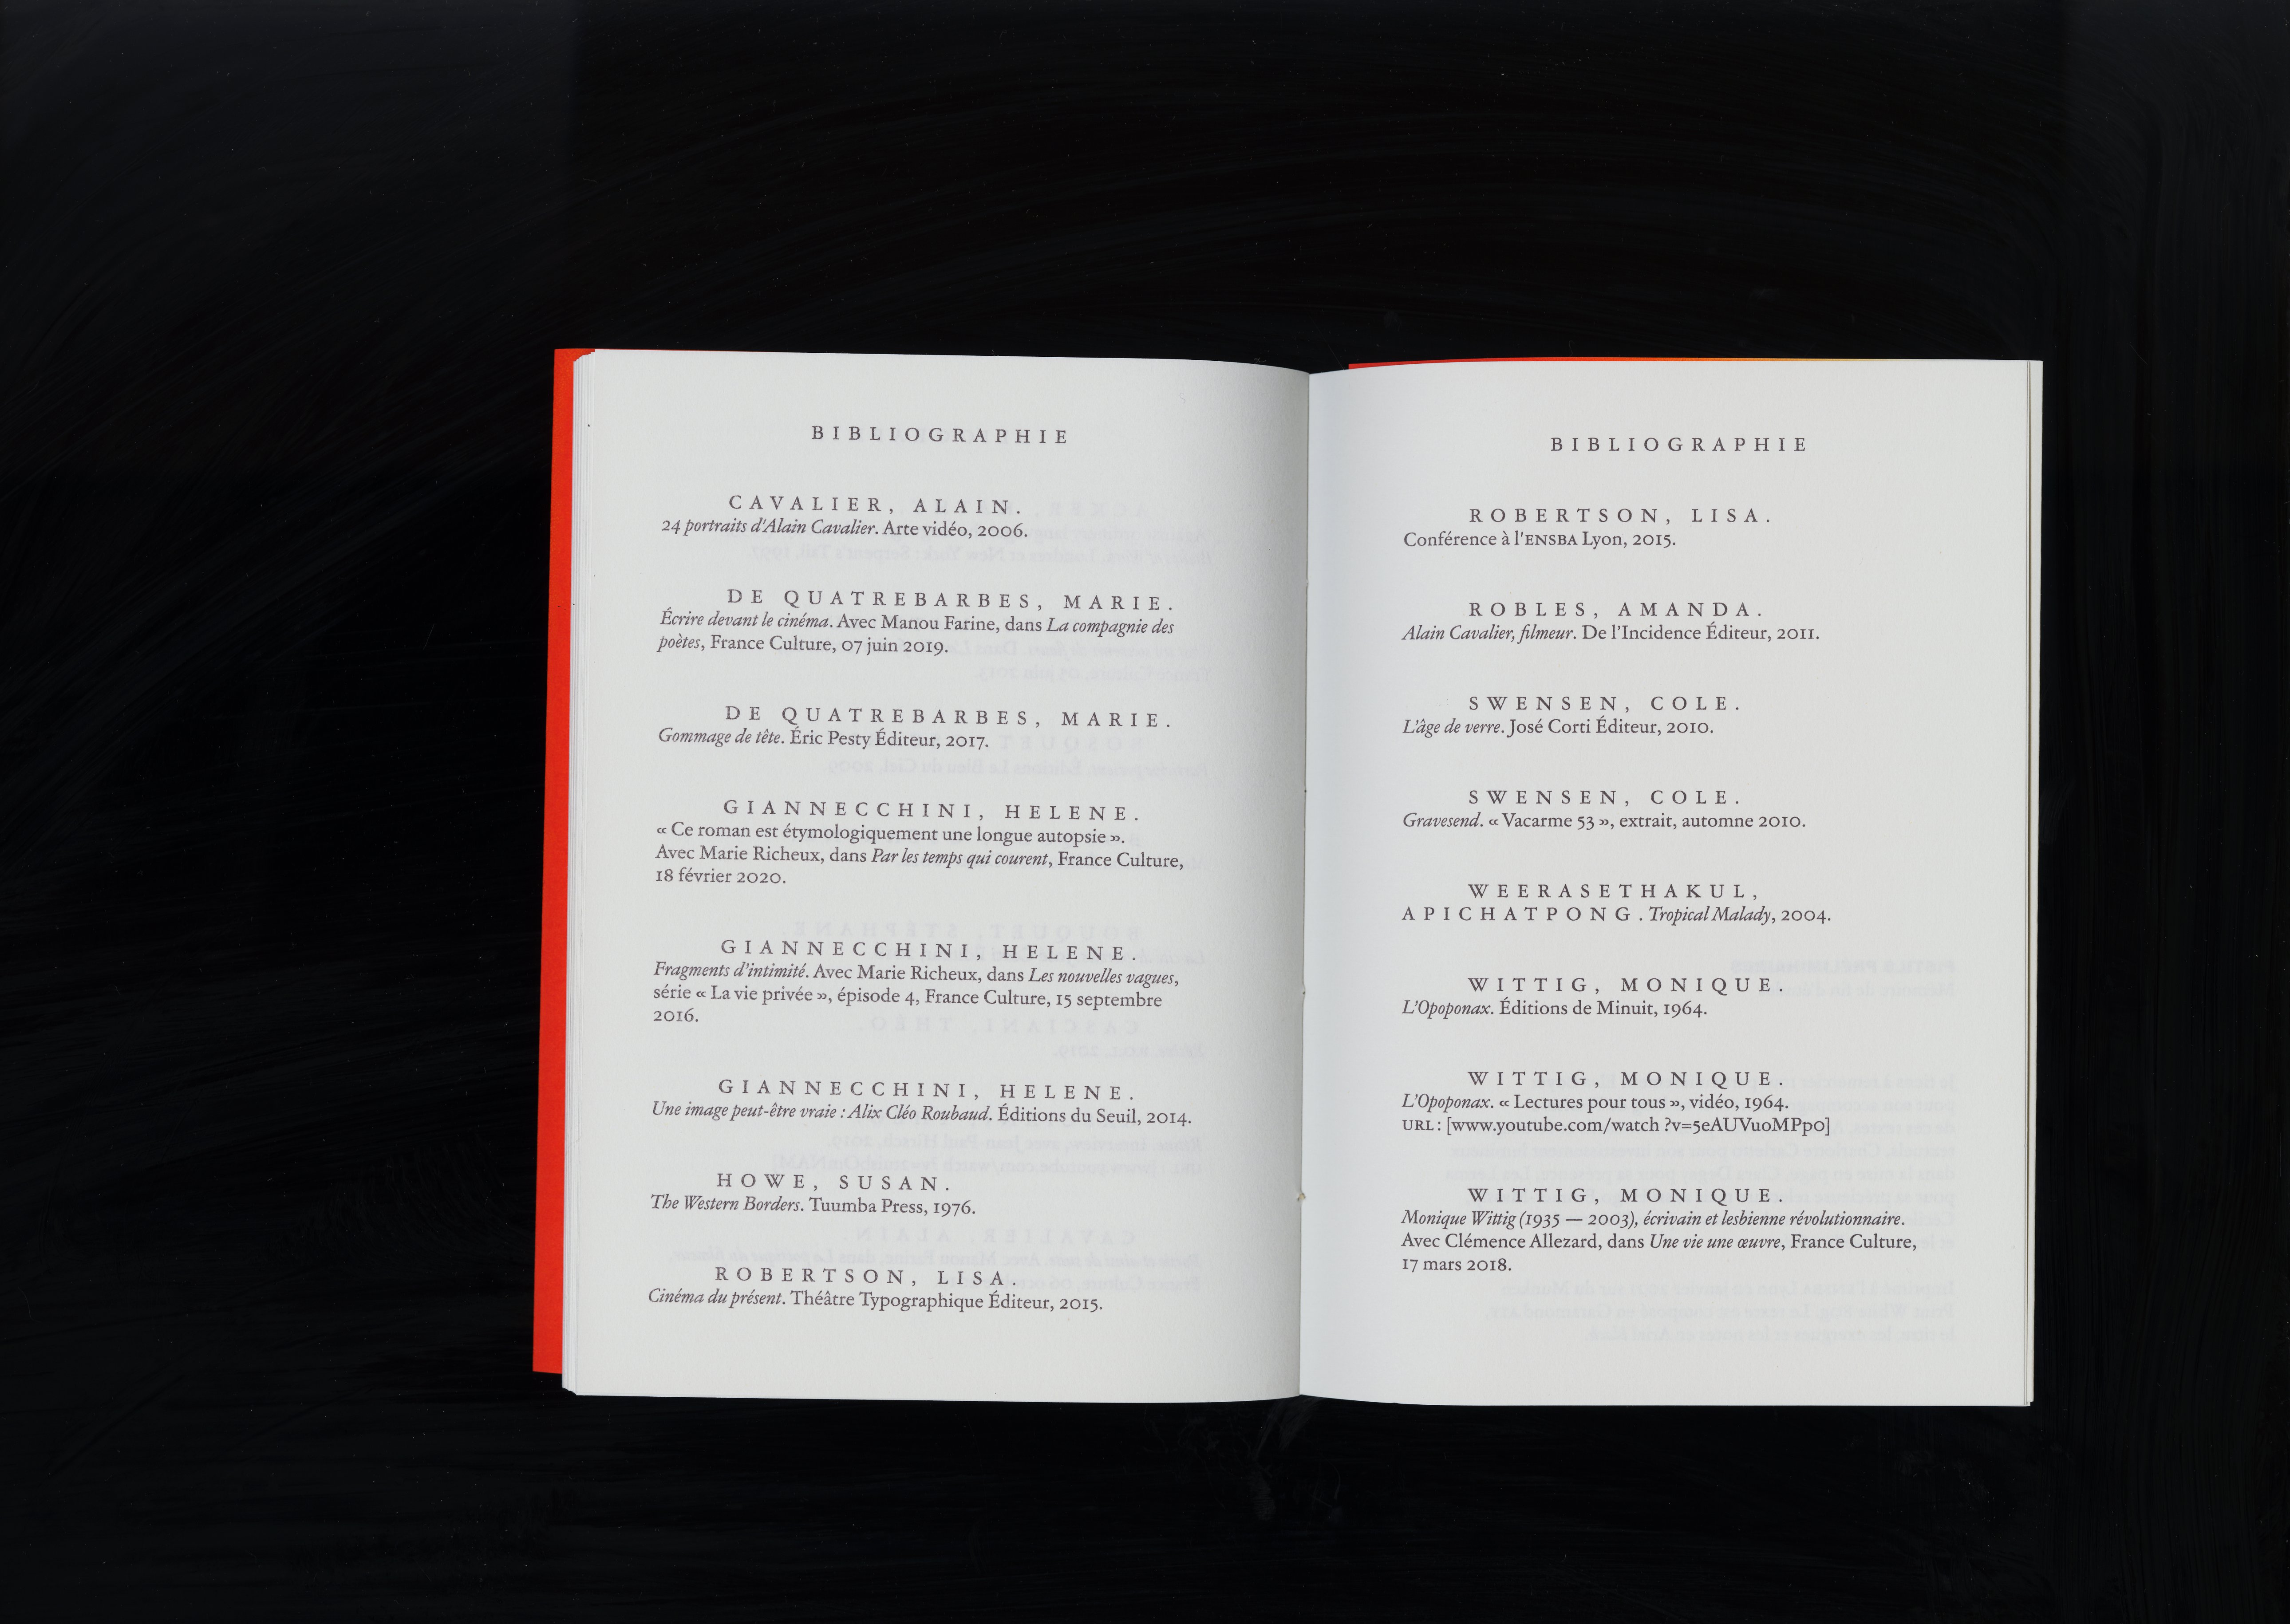 BIBLIOGRAPHIE
CAVALIER, ALAIN.
24 portraits d'Alain Cavalier. Arte vidéo, 2006.
DE QUATREBARBES, MARIE.
Écrire devant le cinéma. Avec Manou Farine, dans La compagnie des
poètes, France Culture, 07 juin 2019.
DE QUATREBARBES, MARIE.
Gommage de tête. Éric Pesty Éditeur, 2017.
GIANNECCHINI, HELENE.
« Ce roman est étymologiquement une longue autopsie ».
Avec Marie Richeux, dans Par les temps qui courent, France Culture,
18 février 2020.
GIANNECCHINI, HELENE.
Fragments d'intimité. Avec Marie Richeux, dans Les nouvelles vagues,
série « La vie privée », épisode 4, France Culture, 15 septembre
2016.
GIANNECCHINI, HELENE.
Une image peut-être vraie : Alix Cléo Roubaud. Éditions du Seuil, 2014.
HOWE, SUSAN.
The Western Borders. Tuumba Press, 1976.
ROBERTSON, LISA.
Cinéma du présent. Théâtre Typographique Éditeur, 2015.
BIBLIOGRAPHIE
ROBERTSON, LISA.
Conférence à l'ENSBA Lyon, 2015.
ROBLES, AMANDA.
Alain Cavalier, filmeur. De l’Incidence Éditeur, 2011.
SWENSEN, COLE.
L’âge de verre. José Corti Éditeur, 2010.
SWENSEN, COLE.
Gravesend. « Vacarme 53 », extrait, automne 2010.
WEERASETHAKUL,
APICHATPONG. Tropical Malady, 2004.
WITTIG, MONIQUE.
L’Opoponax. Éditions de Minuit, 1964.
WITTIG, MONIQUE.
L’Opoponax. « Lectures pour tous », vidéo, 1964.
URL : [www.youtube.com/watch ?v=5eAUVuoMPp0]
WITTIG, MONIQUE.
Monique Wittig (1935 — 2003), écrivain et lesbienne révolutionnaire.
Avec Clémence Allezard, dans Une vie une œuvre, France Culture,
17 mars 2018.